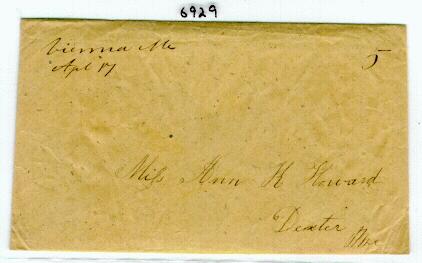 6929
Vienna Me
Apl 17
5
Miss Ann K Howard
Dexter
Me